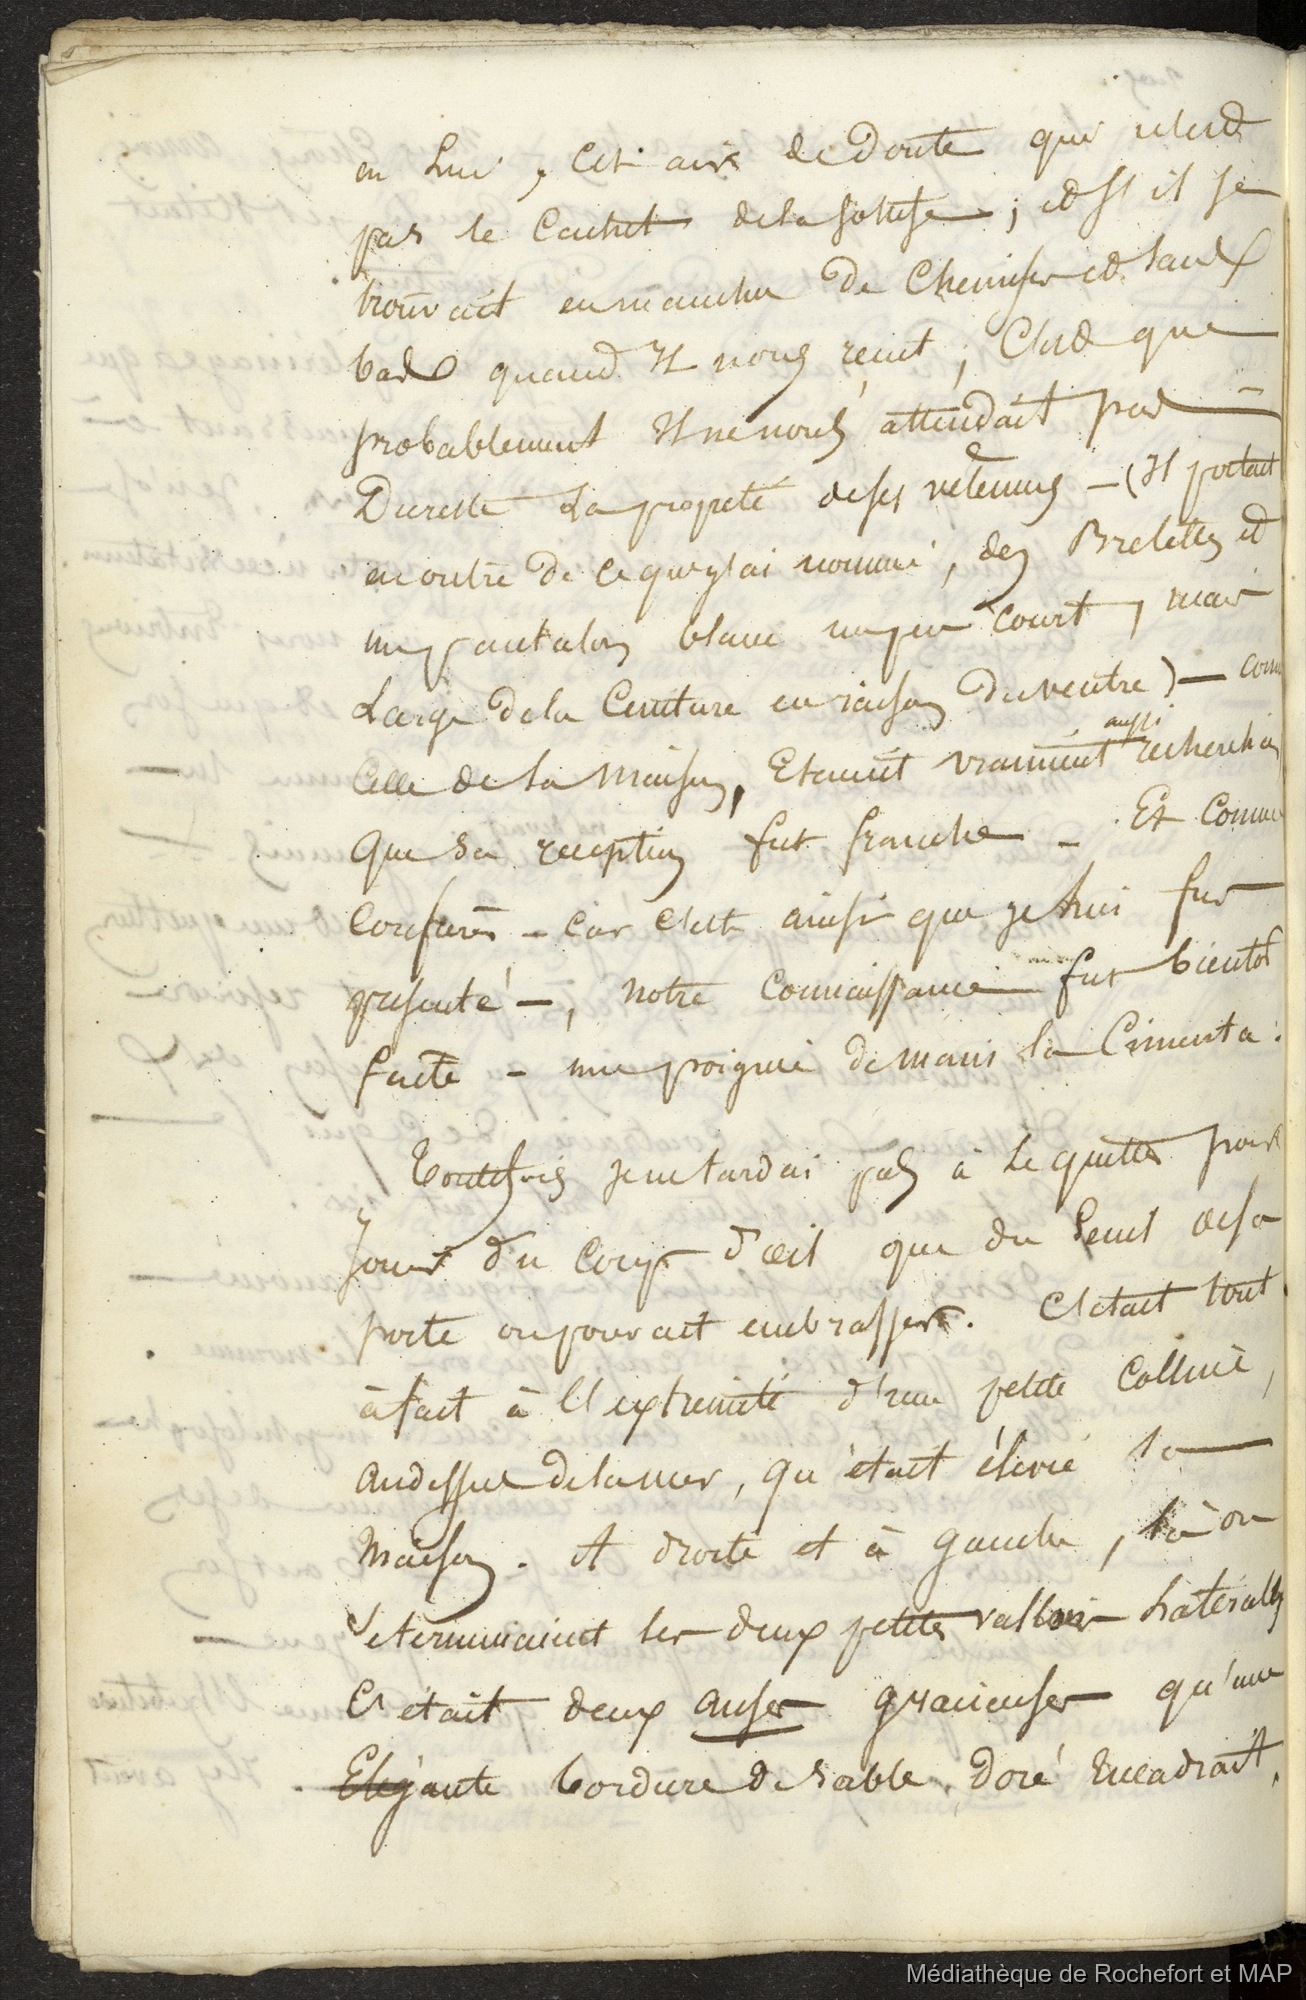 en lui, cet air de doute qui n'est
pas le cachet de la sottise ; et s'il se
trouvait en manche de chemise et sans
bas quand il nous reçut, c'est que
probablement il ne nous attendait pas —
Du reste la propreté de ses vêtemens — (Il portait
en outre de ce que j'ai nommé, des Bretelles et
un pantalon blanc un peu court, mais
large de la Ceinture en raison du ventre) — comme
celle de la maison, Etaient vraiment aussi recherchées
que sa reception fut franche — Et comme
Confrère — car c'est ainsi que je lui fus
présenté —, notre connaissance fut bientôt
faite — une poignée de mains la Cimenta.
Toutefois je ne tardai pas à le quitter pour
Jouir du coup d'œil que du seuil de sa
porte on pouvait embrasser. C'était tout
à fait à l'extremité d'une petite Colline,
au dessus de la mer, qu'était élevée la
Maison. A droite et à gauche, là où
se terminaient les deux petits vallons latérales
C'était deux anses gracieuses qu'une
Elégante bordure de sable doré encadrait,
Médiathèque de Rochefort et MAP